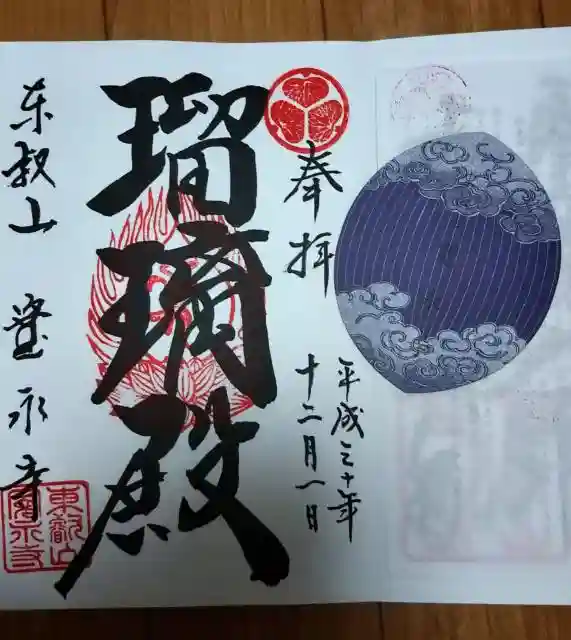 奉拝
平成三十年
十二月一日
瑠璃殿
東叡山 寛永寺
東叡山
寛永寺